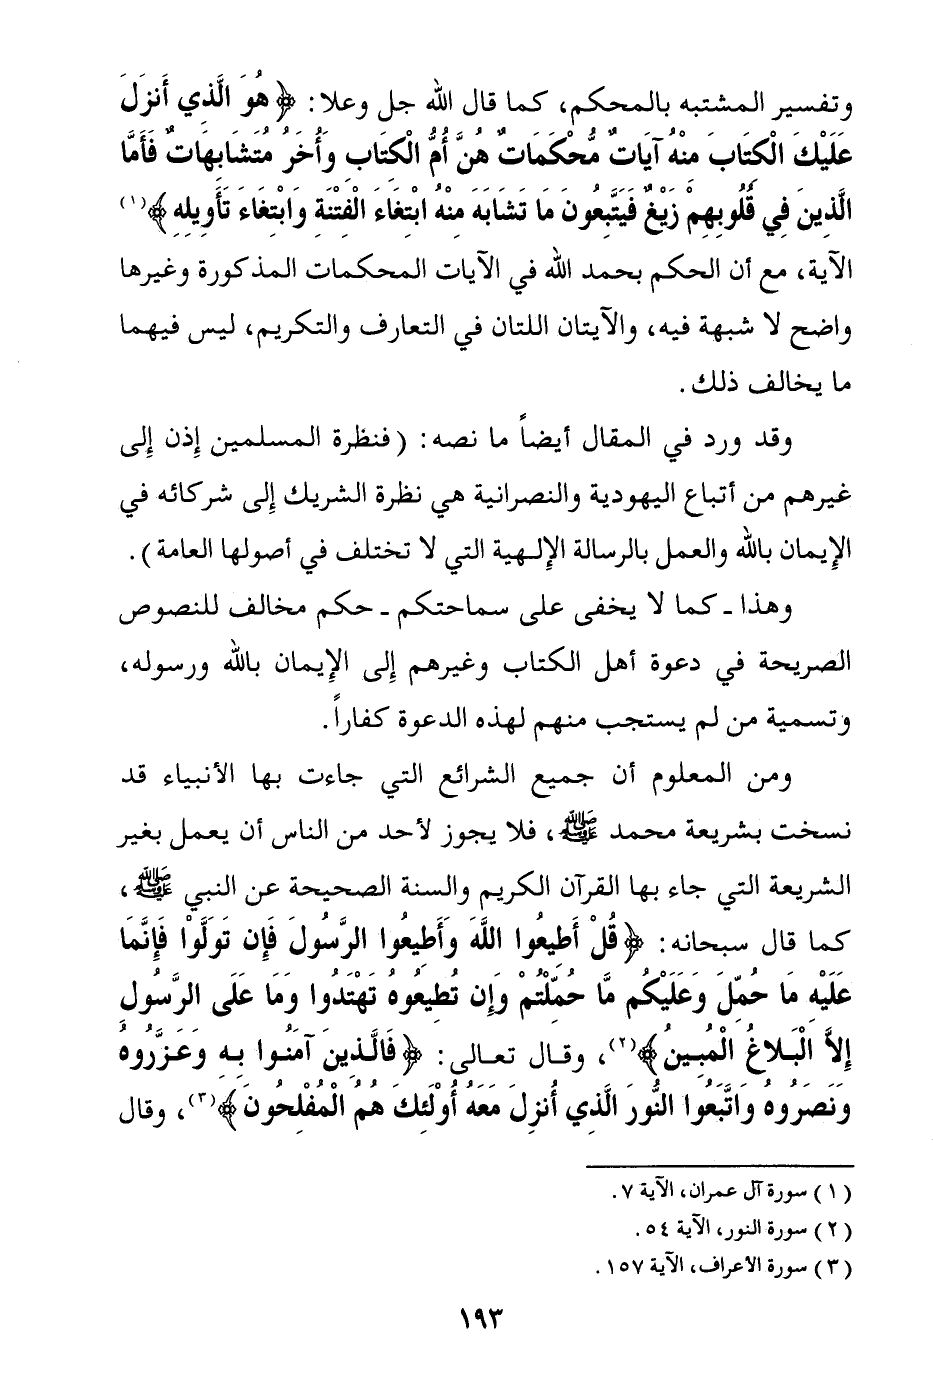 وتفسير المشتبه بالمحكم، كما قال الله جل وعلا: ﴿هُوَ الَّذِي أَنزَلَ
عَلَيْكَ الْكِتَابَ مِنْهُ آيَاتٌ مُّحْكَمَاتٌ هُنَّ أُمُّ الْكِتَابِ وَأُخَرُ مُتَشَابِهَاتٌ فَأَمَّا
الَّذِينَ فِي قُلُوبِهِمْ زَيْغٌ فَيَتَّبِعُونَ مَا تَشَابَهَ مِنْهُ ابْتِغَاءَ الْفِتْنَةِ وَابْتِغَاءَ تَأْوِيلِهِ﴾(١)
الآية، مع أن الحكم بحمد الله في الآيات المحكمات المذكورة وغيرها
واضح لا شبهة فيه، والآيتان اللتان في التعارف والتكريم، ليس فيهما
ما يخالف ذلك.
وقد ورد في المقال أيضاً ما نصه: (فنظرة المسلمين إذن إلى
غيرهم من أتباع اليهودية والنصرانية هي نظرة الشريك إلى شركائه في
الإيمان بالله والعمل بالرسالة الإلهية التي لا تختلف في أصولها العامة).
وهذا ـ كما لا يخفى على سماحتكم ـ حكم مخالف للنصوص
الصريحة في دعوة أهل الكتاب وغيرهم إلى الإيمان بالله ورسوله،
وتسمية من لم يستجب منهم لهذه الدعوة كفاراً.
ومن المعلوم أن جميع الشرائع التي جاءت بها الأنبياء قد
نسخت بشريعة محمد ﷺ، فلا يجوز لأحد من الناس أن يعمل بغير
الشريعة التي جاء بها القرآن الكريم والسنة الصحيحة عن النبي ﷺ،
كما قال سبحانه: ﴿قُلْ أَطِيعُوا اللَّهَ وَأَطِيعُوا الرَّسُولَ فَإِن تَوَلَّوْا فَإِنَّمَا
عَلَيْهِ مَا حُمِّلَ وَعَلَيْكُم مَّا حُمِّلْتُمْ وَإِن تُطِيعُوهُ تَهْتَدُوا وَمَا عَلَى الرَّسُولِ
إِلاَّ الْبَلاغُ الْمُبِينُ﴾(٢)، وقال تعالى: ﴿فَالَّذِينَ آمَنُوا بِهِ وَعَزَّرُوهُ
وَنَصَرُوهُ وَاتَّبَعُوا النُّورَ الَّذِي أُنزِلَ مَعَهُ أُوْلَئِكَ هُمُ الْمُفْلِحُونَ﴾(٣)، وقال
(١) سورة آل عمران، الآية ٧.
(٢) سورة النور، الآية ٥٤.
(٣) سورة الأعراف، الآية ١٥٧.
١٩٣